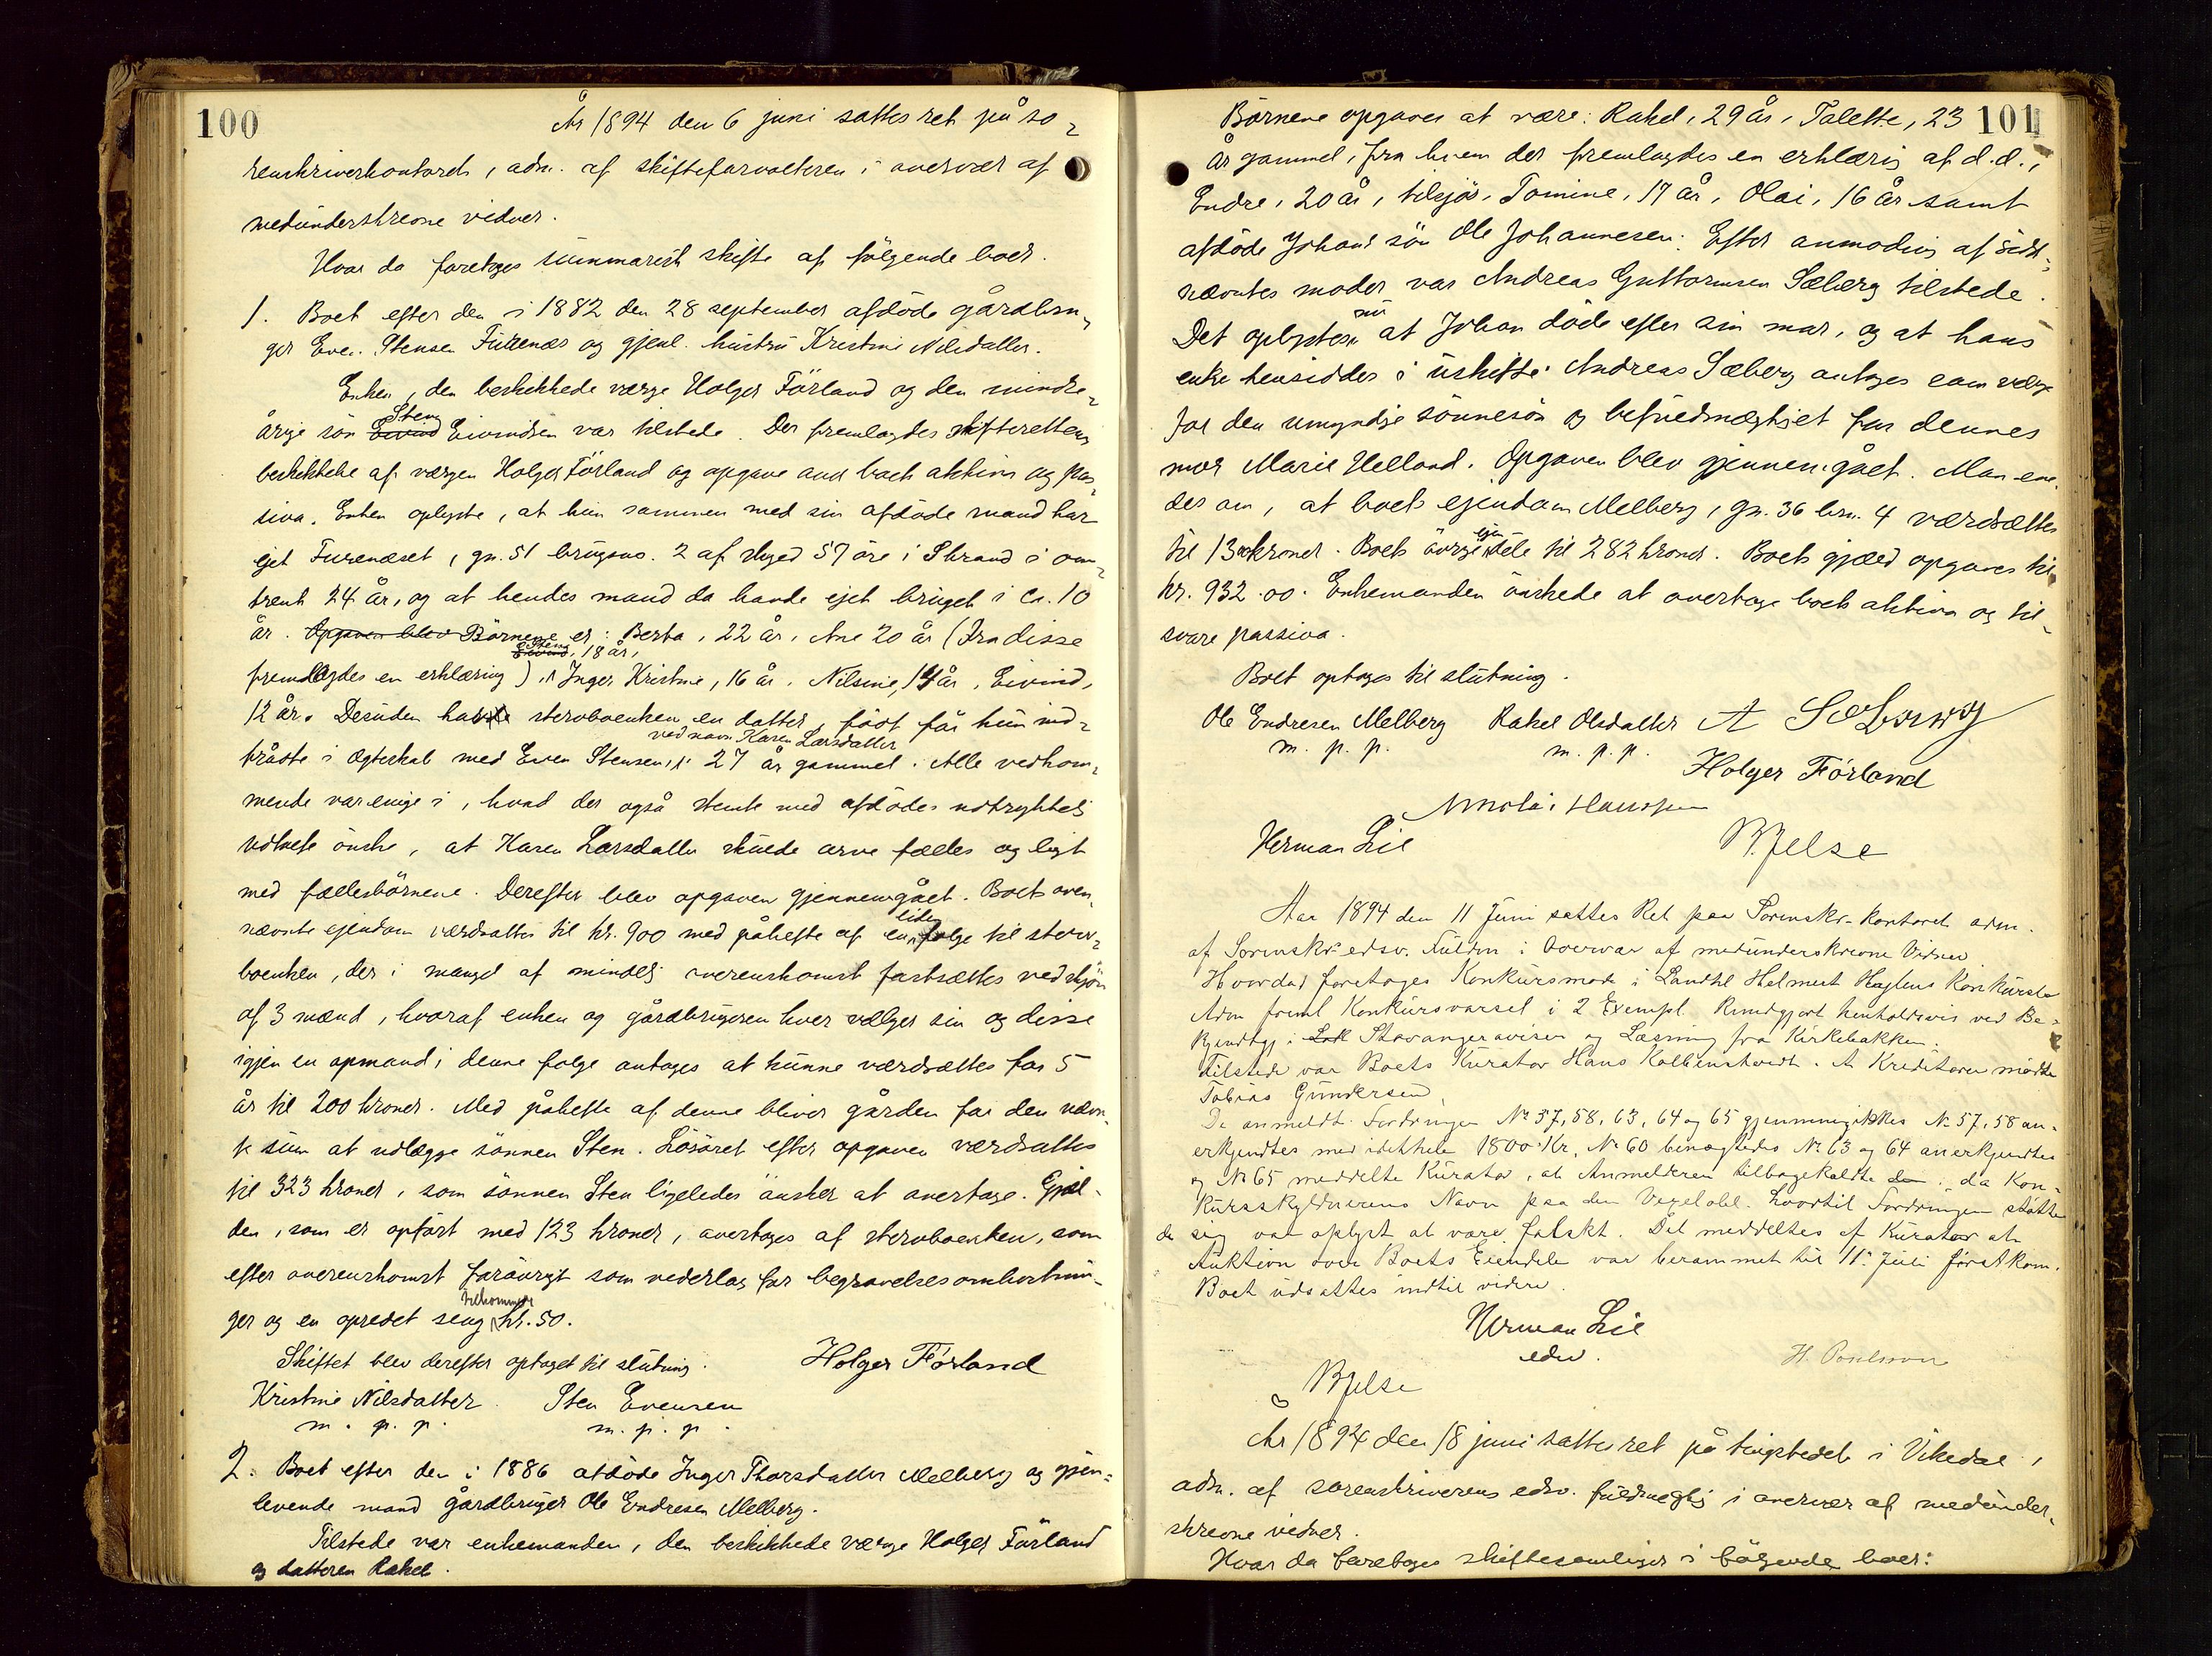 100
År 1894 den 6 juni sattes ret på so-
renskriverkontoret, adm. af skifteforvalteren i overvær af
medunderskrevne vidner.
Hvor da foretoges summarisk skifte af følgende boer.
1. Boet efter den i 1882 den 28 september afdöde gårdbru-
ger Even Stensen Furenæs og gjenl. hustru Kristine Nilsdatter.
Enken, den beskikkede værge Holger Förland og den mindre-
årige sön Eivind Sten Eivindsen var tilstede. Der fremlagdes skifterettens
beskikkelse af værgen Holger Förland og opgave over boets aktiva og pas-
siva. Enken oplyste, at hun sammen med sin afdöde mand har
ejet Furenæset, gn. 51 brugsno. 2 af skyld 57 öre i Strand i om-
trent 24 år, og at hendes mand da havde ejet bruget i ca. 10
år. Opgaven blev Börnene er: Berta, 22 år, Ane 20 år (Fra disse
Eivind Sten, 18 år,
fremlagdes en erklæring), Inger Kristine, 16 år, Nilsine, 14 år, Eivind,
12 år. Desuden havde stervboenken en datter, födt för hun ind-
ved navn Karen Larsdatter
trådte i ægteskab med Even Stensen, 27 år gammel. Alle vedkom-
mende var enige i, hvad der også stemte med afdödes udtrykkelig
udtalte önske, at Karen Larsdatter skulde arve fælles og ligt
med fællesbörnene. Derefter blev opgaven gjennemgået. Boets oven-
nævnte ejendom værdsattes til kr. 900 med påhefte af en liden folge til sterv-
boenken, der i mangel af mindelig overenskomst fastsættes ved skjön
af 3 mænd, hvoraf enken og gårdbrugeren hver vælger sin og disse
igjen en opmand; denne folge antages at kunne værdsættes for 5
år til 200 kroner. Med påhefte af denne bliver gården for den nævn-
te sum at udlægge sönnen Sten. Lösöret efter opgaven værdsattes
til 323 kroner, som sönnen Sten ligeledes önsker at overtage. Gjæl-
den, som er opfört med 123 kroner, overtages af stervboenken, som
efter overenskomst forövrigt som vederlag for begravelsesomkostnin-
tilkommer
ger og en opredet seng kr. 50.
Skiftet blev derefter optaget til slutning. Holger Förland
Kristine Nilsdatter Sten Evensen
m. p. p. m. p. p.
2. Boet efter den i 1886 afdöde Inger Thorsdatter Melberg og gjen-
levende mand gårdbruger Ole Endresen Melberg.
Tilstede var enkemanden, den beskikkede værge Holger Förland
og datteren Rakel.
101
Börnene opgaves at være: Rakel, 29 år, Talette, 23
år gammel, fra hvem der fremlagdes en erklæring af d.d.,
Endre, 20 år, tilsjös, Tomine, 17 år, Olai, 16 år samt
afdöde Johans sön Ole Johannesen. Efter anmodning af sidst-
nævntes moder var Andreas Guttormsen Sæberg tilstede.
Det oplystes nu at Johan döde efter sin mor, og at hans
enke hensidder i uskifte. Andreas Sæberg antoges som værge
for den umyndige sönnesön og befuldmægtiget for dennes
mor Marie Helland. Opgaven blev gjennemgået. Man ene-
des om, at boets ejendom Melberg, gn. 36 brn. 4 værdsættes
til 1300 kroner. Boets övrige ejendele til 282 kroner. Boets gjæld opgaves til
kr. 932.00. Enkemanden önskede at overtage boets aktiva og til-
svare passiva.
Boet optoges til slutning.
Ole Endresen Melberg Rakel Olsdatter A Sæberg
m. p. p. m. p. p.
Holger Förland
Nicolai Hanssen
Herman Lie B Jelse
Aar 1894 den 11 Juni sattes Ret paa Sorenskr.-kontoret adm.
af Sorenskr. edsv. Fuldm i Overvær af medunderskrevne Vidner.
Hvorda foretoges Konkursmøde i Landhl Helmert Hagens Konkursbo
Adm freml Konkursvarsel i 2 Exempl Kundgjort henholdsvis ved Be-
kjendtgj i Stavangeraviser og Læsning fra Kirkebakken.
Tilstede var Boets Kurator Hans Kolbenstvedt. Af Kreditorer mødte
Tobias Gundersen.
De anmeldte Fordringer No 57, 58, 63, 64 og 65 gjennemgikkes No 57, 58 an-
erkjendtes med idethele 1800 Kr, No 60 benægtedes No 63 og 64 anerkjendtes
og No 65 meddelte Kurator, at Anmelderen tilbagekaldte den, da Kon-
kursskyldnerens Navn paa den Vexelobl. hvortil Fordringen støtte-
de sig var oplyst at være falskt. Det meddeltes af Kurator at
Auktion over Boets Eiendele var berammet til 11te Juli førstkom.
Boet udsattes indtil videre.
Herman Lie
edsv. H. Poulsson
B Jelse
År 1894 den 18 juni sattes ret på tingstedet i Vikedal,
adm. af sorenskriverens edsv. fuldmægtig i overvær af medunder-
skrevne vidner.
Hvor da foretoges skiftesamlinger i følgende boer: